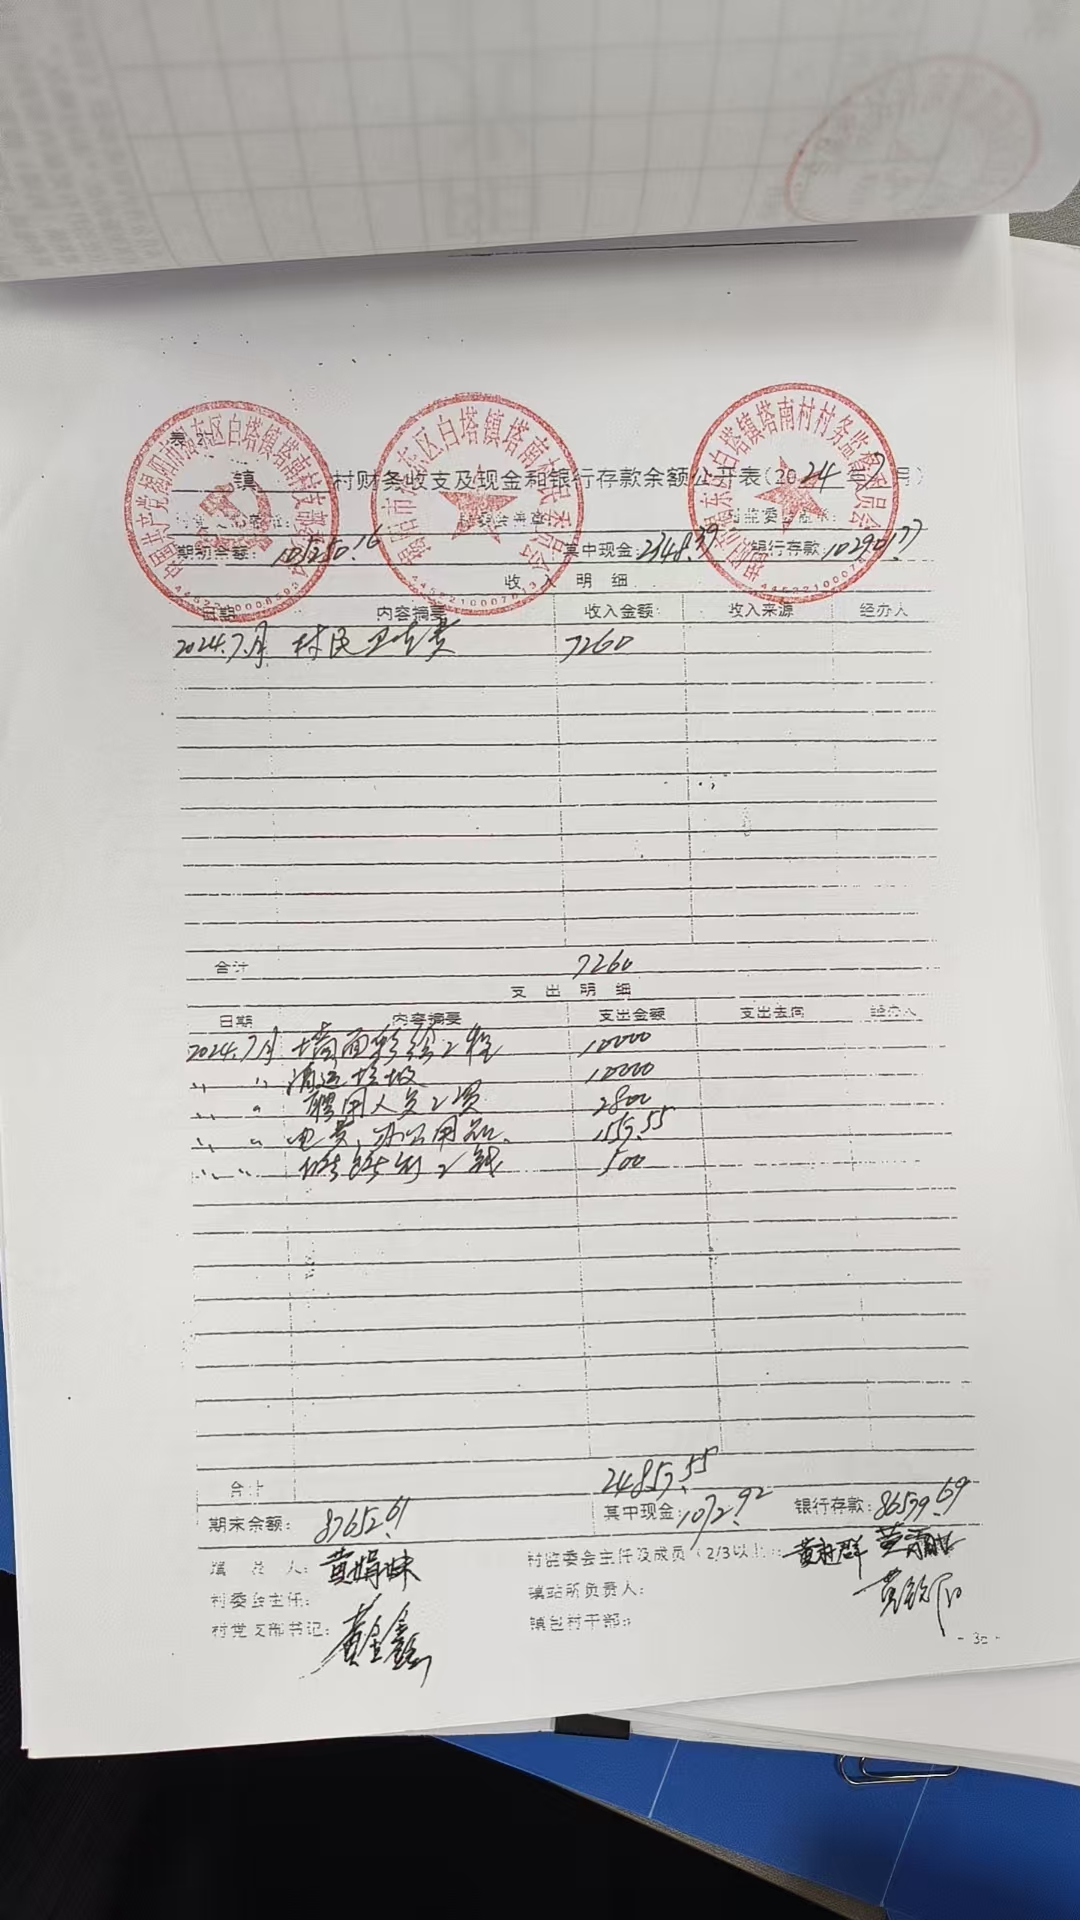 表
镇 村财务收支及现金和银行存款余额公开表(2024年7月)
期初余额: 105250.16 其中现金: 2348.39 银行存款: 102901.77
收入明细
日期 内容摘要 收入金额 收入来源 经办人
2024.7月 村民卫生费 7260
合计 7260
支出明细
日期 内容摘要 支出金额 支出去向 经办人
2024.7月 墙面彩绘工程 10000
〃 〃 清运垃圾 10000
〃 〃 聘用人员工资 2800
〃 〃 电费、办公用品 1557.55
〃 〃 500
合计 24857.55
期末余额: 87652.61 其中现金: 1072.92 银行存款: 86579.69
填表人: 黄娟妹 村监委会主任及成员(2/3以上): 黄
村委会主任: 镇站所负责人:
村党支部书记: 黄金鑫 镇包村干部:
- 36 -
中国共产党揭阳市揭东区白塔镇塔南村支部委员会
揭阳市揭东区白塔镇塔南村民委员会
揭阳市揭东区白塔镇塔南村村务监督委员会